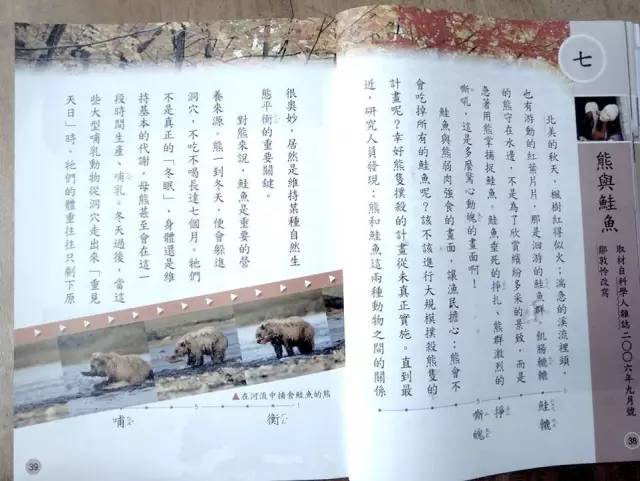 七
熊與鮭魚
取材自科學人雜誌二○○六年九月號
鄒敦怜改寫
北美的秋天，楓樹紅得似火；湍急的溪流裡頭，
也有游動的紅葉片片，那是洄游的鮭魚群。飢腸轆轆
的熊守在水邊，不是為了欣賞繽紛多采的景致，而是
急著用熊掌捕捉鮭魚。鮭魚垂死的掙扎、熊群激烈的
嘶吼，這是多麼驚心動魄的畫面啊！
鮭魚與熊弱肉強食的畫面，讓漁民擔心：熊會不
會吃掉所有的鮭魚呢？該不該進行大規模撲殺熊隻的
計畫呢？幸好熊隻撲殺的計畫從未真正實施。直到最
近，研究人員發現：熊和鮭魚這兩種動物之間的關係
鮭
轆
掙
嘶
魄
38
很奧妙，居然是維持某種自然生
態平衡的重要關鍵。
對熊來說，鮭魚是重要的營
養來源。熊一到冬天，便會躲進
洞穴，不吃不喝長達七個月。牠們
不是真正的「冬眠」，身體還是維
持基本的代謝，母熊甚至會在這一
段時間生產、哺乳。冬天過後，當這
些大型哺乳動物從洞穴走出來「重見
天日」時，牠們的體重往往只剩下原
▲在河流中捕食鮭魚的熊
衡
哺
39